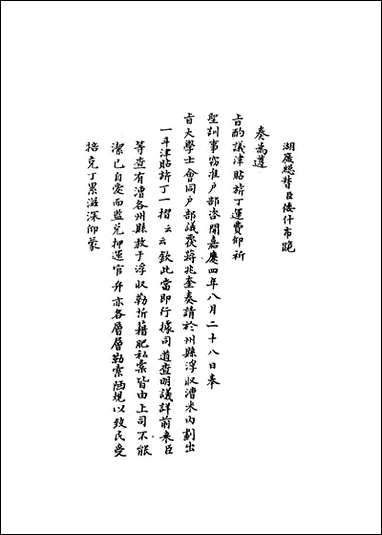 湖廣總督臣倭什布跪
奏為遵
旨酌議津貼旂丁運費仰祈
聖訓事竊准户部咨開嘉慶四年八月二十八日奉
旨大學士會同户部議覆蔣兆奎奏請於州縣浮收漕米內劃出
一斗津貼旂丁一摺云云欽此當即行據司道查明議詳前來臣
等查有漕各州縣敢于浮收勒折藉肥私橐皆由上司不能
潔己自愛而監兌押運官弁亦各層層勒索陋規以致民受
掊克丁累滋深仰蒙